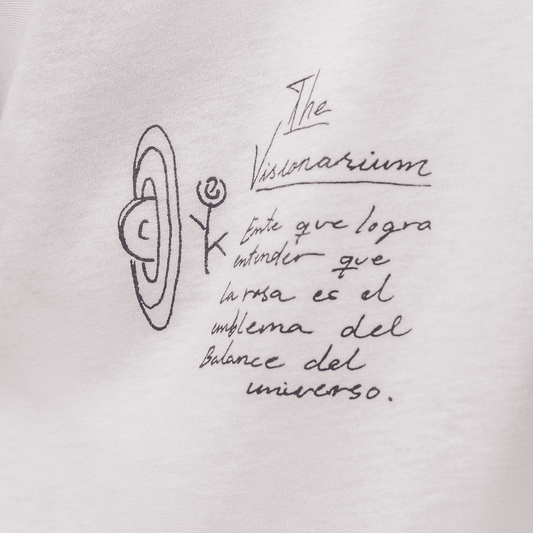 The
Visionarium
Ente que logra
entender que
la rosa es el
emblema del
Balance del
universo.